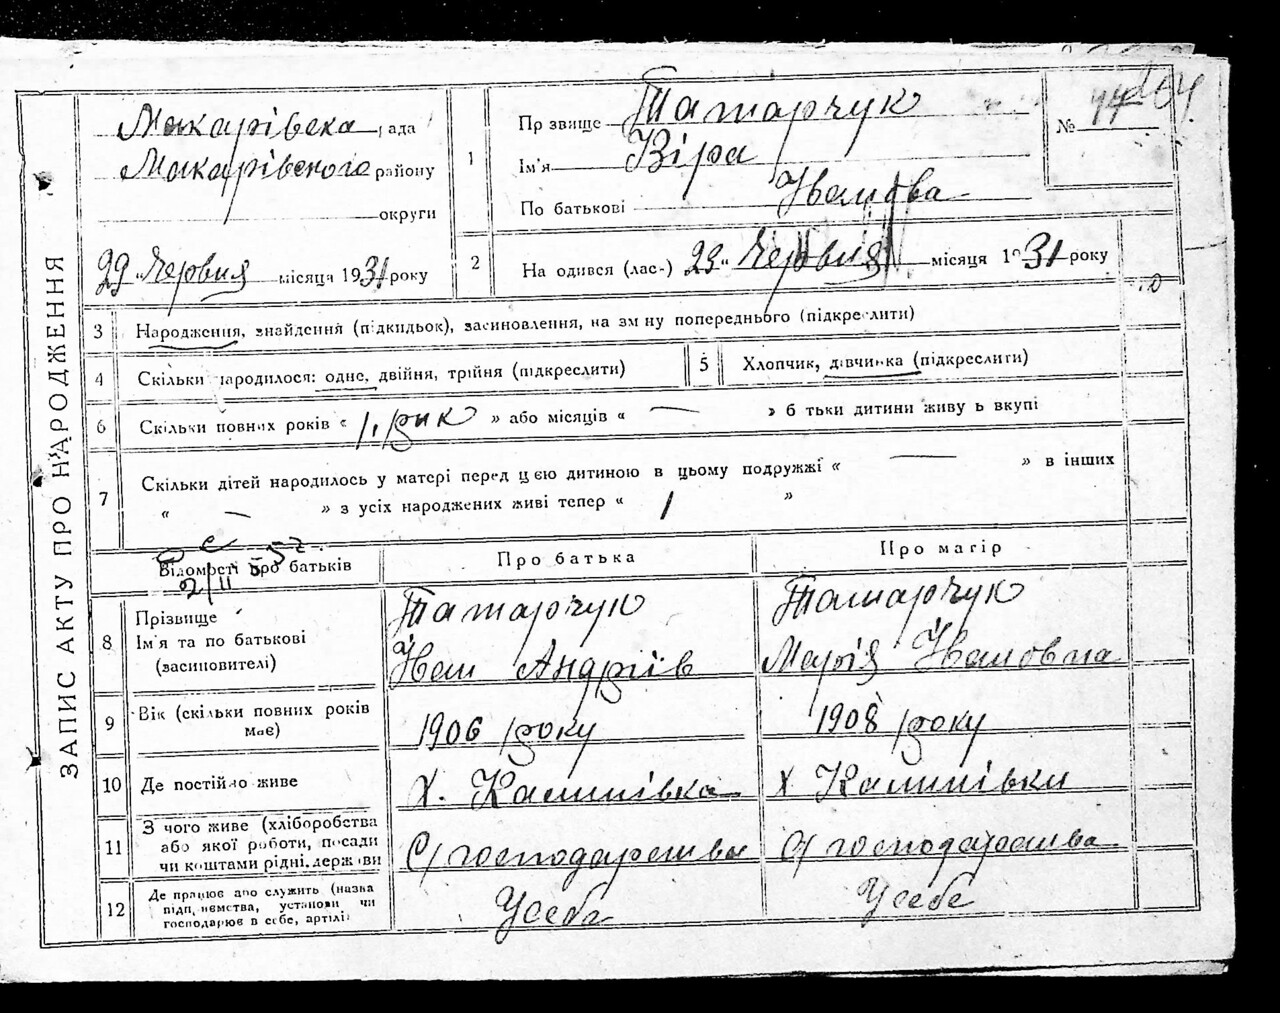 ЗАПИС АКТУ ПРО НАРОДЖЕННЯ
Макарівска рада
Макарівського району
округи
29 Червня місяця 1931 року
1
Прзвище Татарчук
Ім'я Віра
По батькові Іванова
№
2
На одився (лас-) 23 " Червня місяця 1931 року
3 Народження, знайдення (підкидьок), засиновлення, на зм ну попереднього (підкреслити)
4 Скільки народилося: одне, двійня, трійня (підкреслити)
5 Хлопчик, дівчинка (підкреслити)
6 Скільки повних років « 1, рик » або місяців « — » б тьки дитини живу ь вкупі
7 Скільки дітей народилось у матері перед цєю дитиною в цьому подружжі « — » в інших
« — » з усіх народжених живі тепер « 1 »
Відомості про батьків
2/II 57
Про батька
Про матір
8 Прізвище
Ім'я та по батькові
(засиновителі)
Татарчук
Іван Андріїв
Татарчук
Марія Івановна
9 Вік (скільки повних років
має)
1906 року
1908 року
10 Де постійно живе
Х. Калинівка
Х Калинівки
11 З чого живе (хліборобства
або якої роботи, посади
чи коштами рідні, держ ви
С/господарства
С/господарства
12 Де працює або служить (назва
підп иємства, установи чи
господарює в себе, артілі
Усебе
Усебе